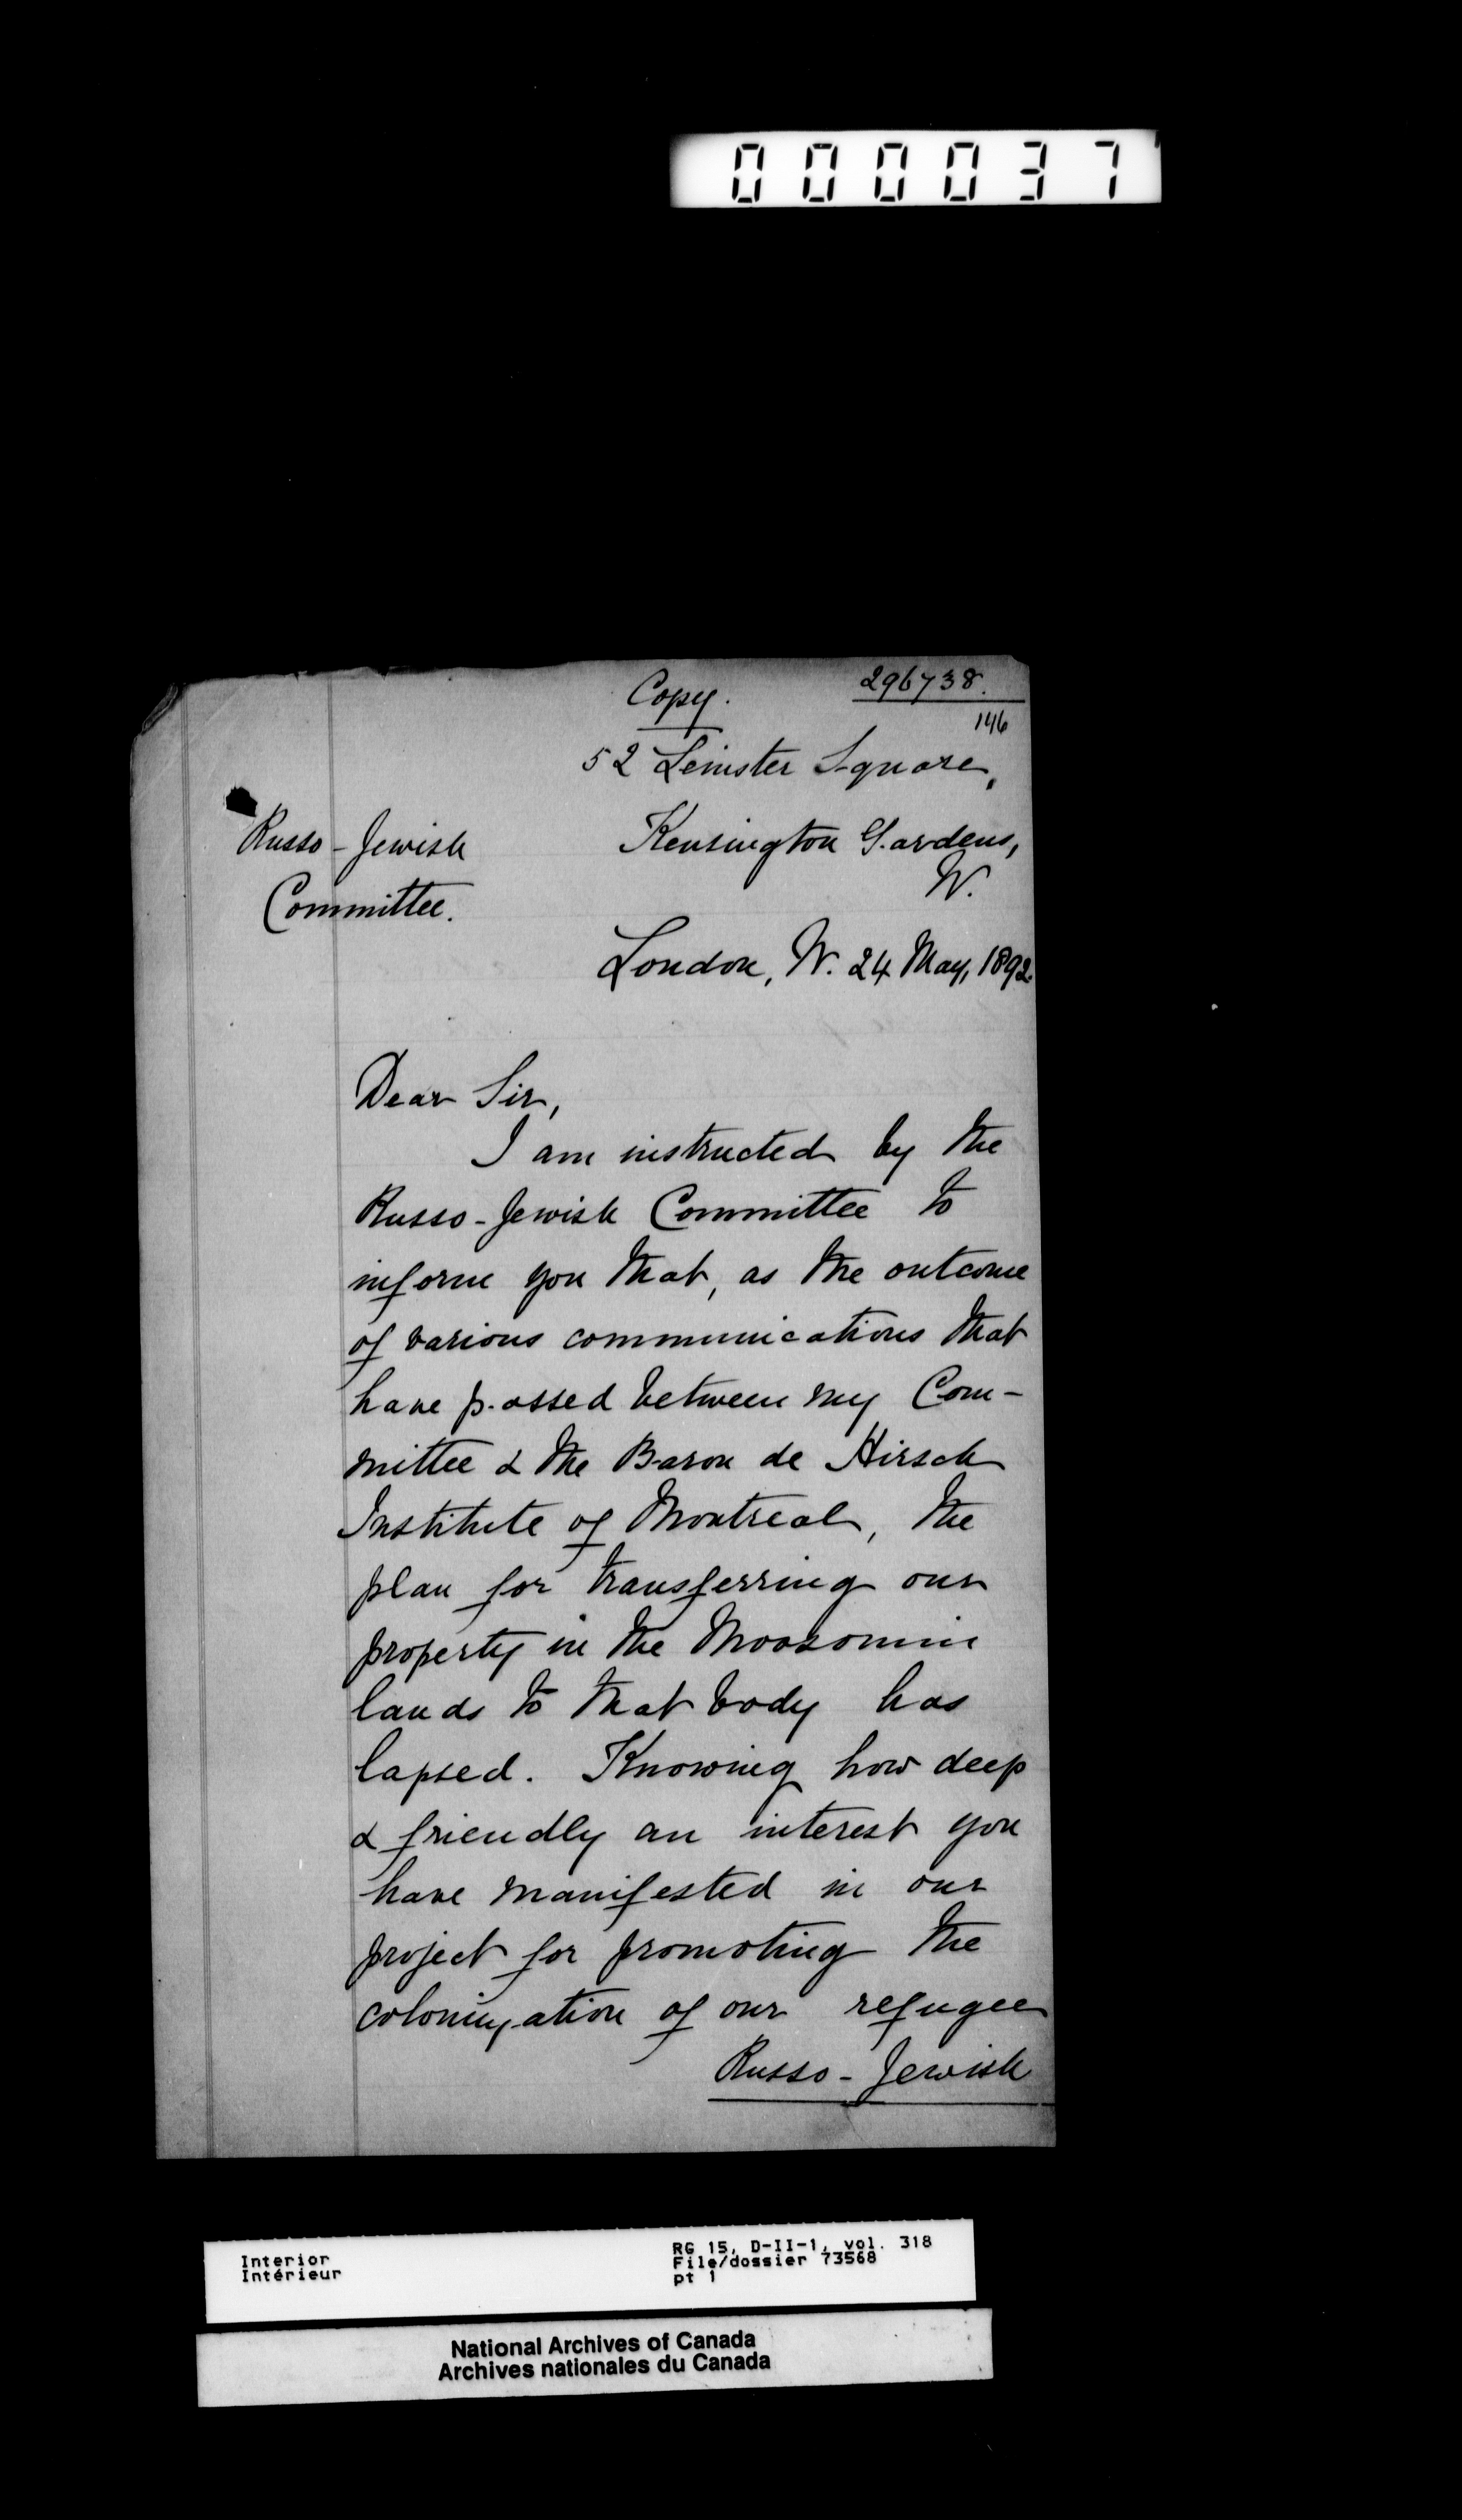 000037
Copy. 296738.
146
52 Leinster Square,
Russo-Jewish Kensington Gardens,
W.
Committee.
London, W. 24 May, 1892.
Dear Sir,
I am instructed by the
Russo-Jewish Committee to
inform you that, as the outcome
of various communications that
have passed between my Com-
mittee & the Baron de Hirsch
Institute of Montreal, the
plan for transferring our
property in the Moosomin
lands to that body has
lapsed. Knowing how deep
& friendly an interest you
have manifested in our
project for promoting the
colonization of our refugee
Russo-Jewish
Interior RG 15, D-II-1, vol. 318
Intérieur File/dossier 73568
pt 1
National Archives of Canada
Archives nationales du Canada